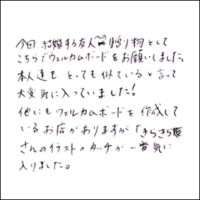 今回 結婚する友人への贈り物として
こちらでウェルカムボードをお願いしました。
本人達も とても似ている と言って
大変気に入っていました!
他にもウェルカムボードを作成して
いるお店がありますが「きらきら姫
さんのイラストのタッチが一番気に
入りました。